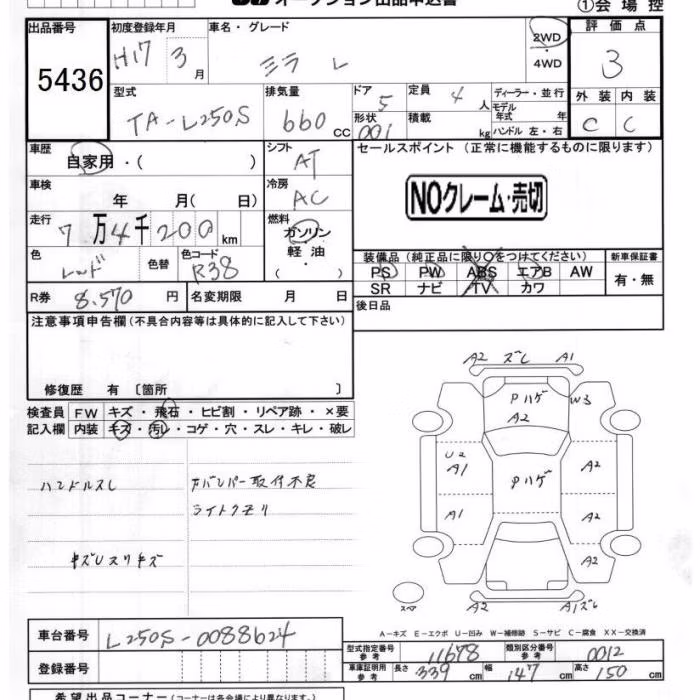 オークション出品申込書
①会場控
出品番号 初度登録年月 車名・グレード 2WD 評価点
5436 H17 3月 ミラ L ・4WD 3
型式 排気量 ドア 5 定員 4人 ディーラー・並行 外装 内装
TA-L250S 660cc 形状 001 積載 kg モデル年式 年 ハンドル 左・右 C C
車歴 自家用・( ) シフト AT セールスポイント (正常に機能するものに限ります)
車検 年 月( 日) 冷房 AC NOクレーム・売切
走行 7万4千200km 燃料 ガソリン
軽油
・( )
色 レッド 色替 色コード R38 装備品 (純正品に限り○をつけてください) 新車保証書
PS PW ABS エアB AW 有・無
SR ナビ TV カワ
R券 8,570円 名変期限 月 日 後日品
注意事項申告欄(不具合内容等は具体的に記入して下さい)
修復歴 有〔箇所 〕
検査員 FW キズ・飛石・ヒビ割・リペア跡・×要
記入欄 内装 キズ・汚レ・コゲ・穴・スレ・キレ・破レ
ハンドルスレ
バンパー取付不良
ライトクモリ
キズUスリキズ
A2 ズレ A1
PハゲA2
W3
U2 A1
A2
Pハゲ
A1
A2
A2
スペア
A2 A1ズレ
A-キズ E-エクボ U-凹み W-補修跡 S-サビ C-腐食 XX-交換済
車台番号 L250S-0088624
登録番号
型式指定番号 参考 11678 類別区分番号 参考 0012
車庫証明用 参考 長さ 339cm 幅 147cm 高さ 150cm
希望出品コーナー(コーナーは各会場により異なります)